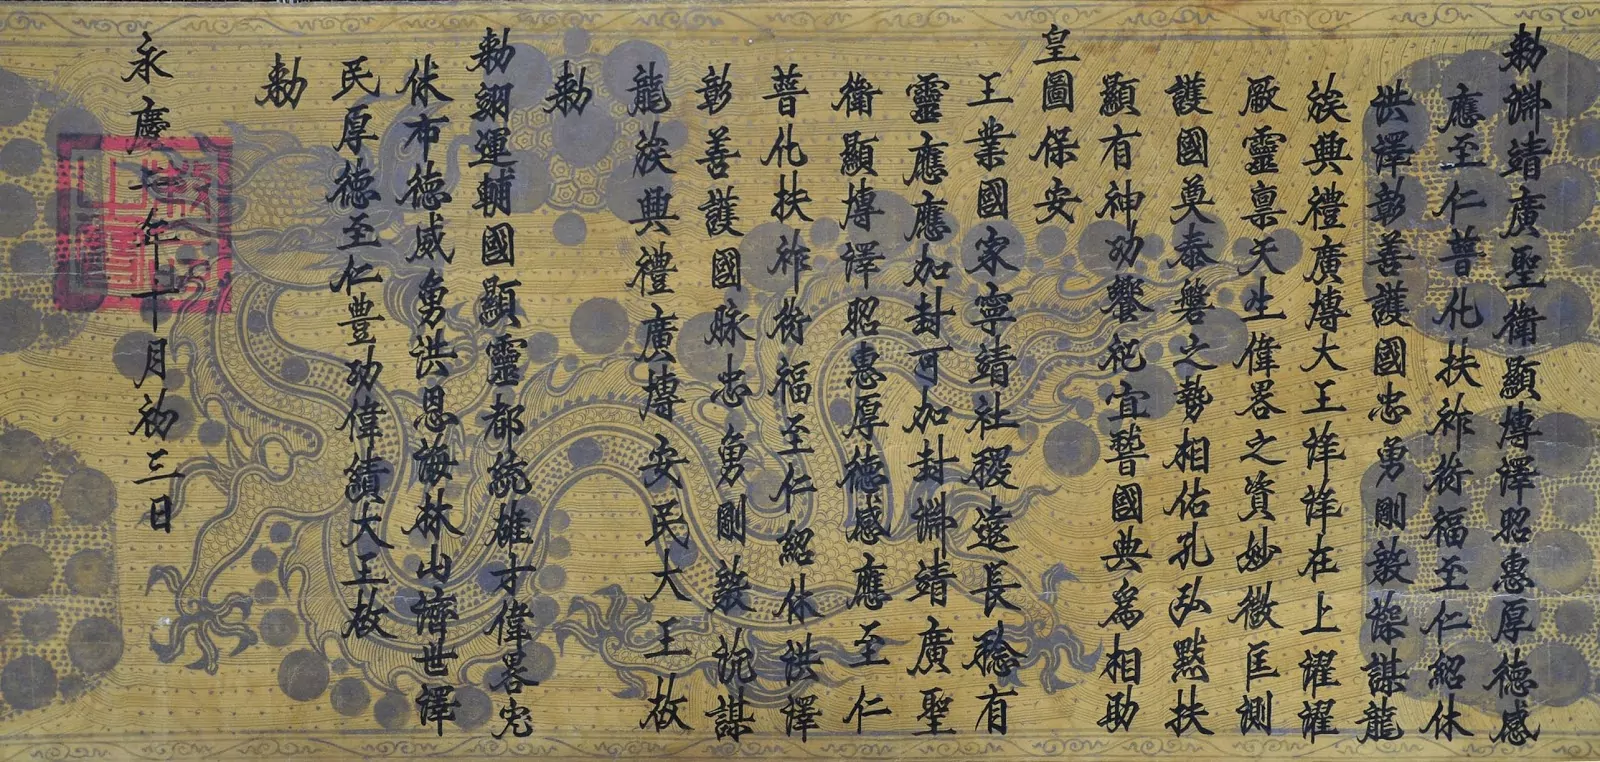 勅淵靖廣聖衛顯博澤昭惠厚德感
應至仁普化扶祚衍福至仁紹休
洪澤彰善護國忠勇剛毅謀龍
族興禮廣博大王詳詳在上濯濯
厥靈禀天生偉畧之資妙微匡測
護國奠泰磐之勢相佑孔弘黙扶
顯有神功饗祀宜誓國典為相助
皇圖保安
王業國家寧靖社稷遠長稔有
靈應應加封可加封淵靖廣聖
衛顯博澤昭惠厚德感應至仁
普化扶祚衍福至仁紹休洪澤
彰善護國脉忠勇剛毅謀
龍族興禮廣博安民大王故
勅
勅翊運輔國顯靈都統雄才偉畧
休布德威勇洪恩海山濟世澤
民厚德至仁豐功偉績大王故
勅
永慶七年十月初三日